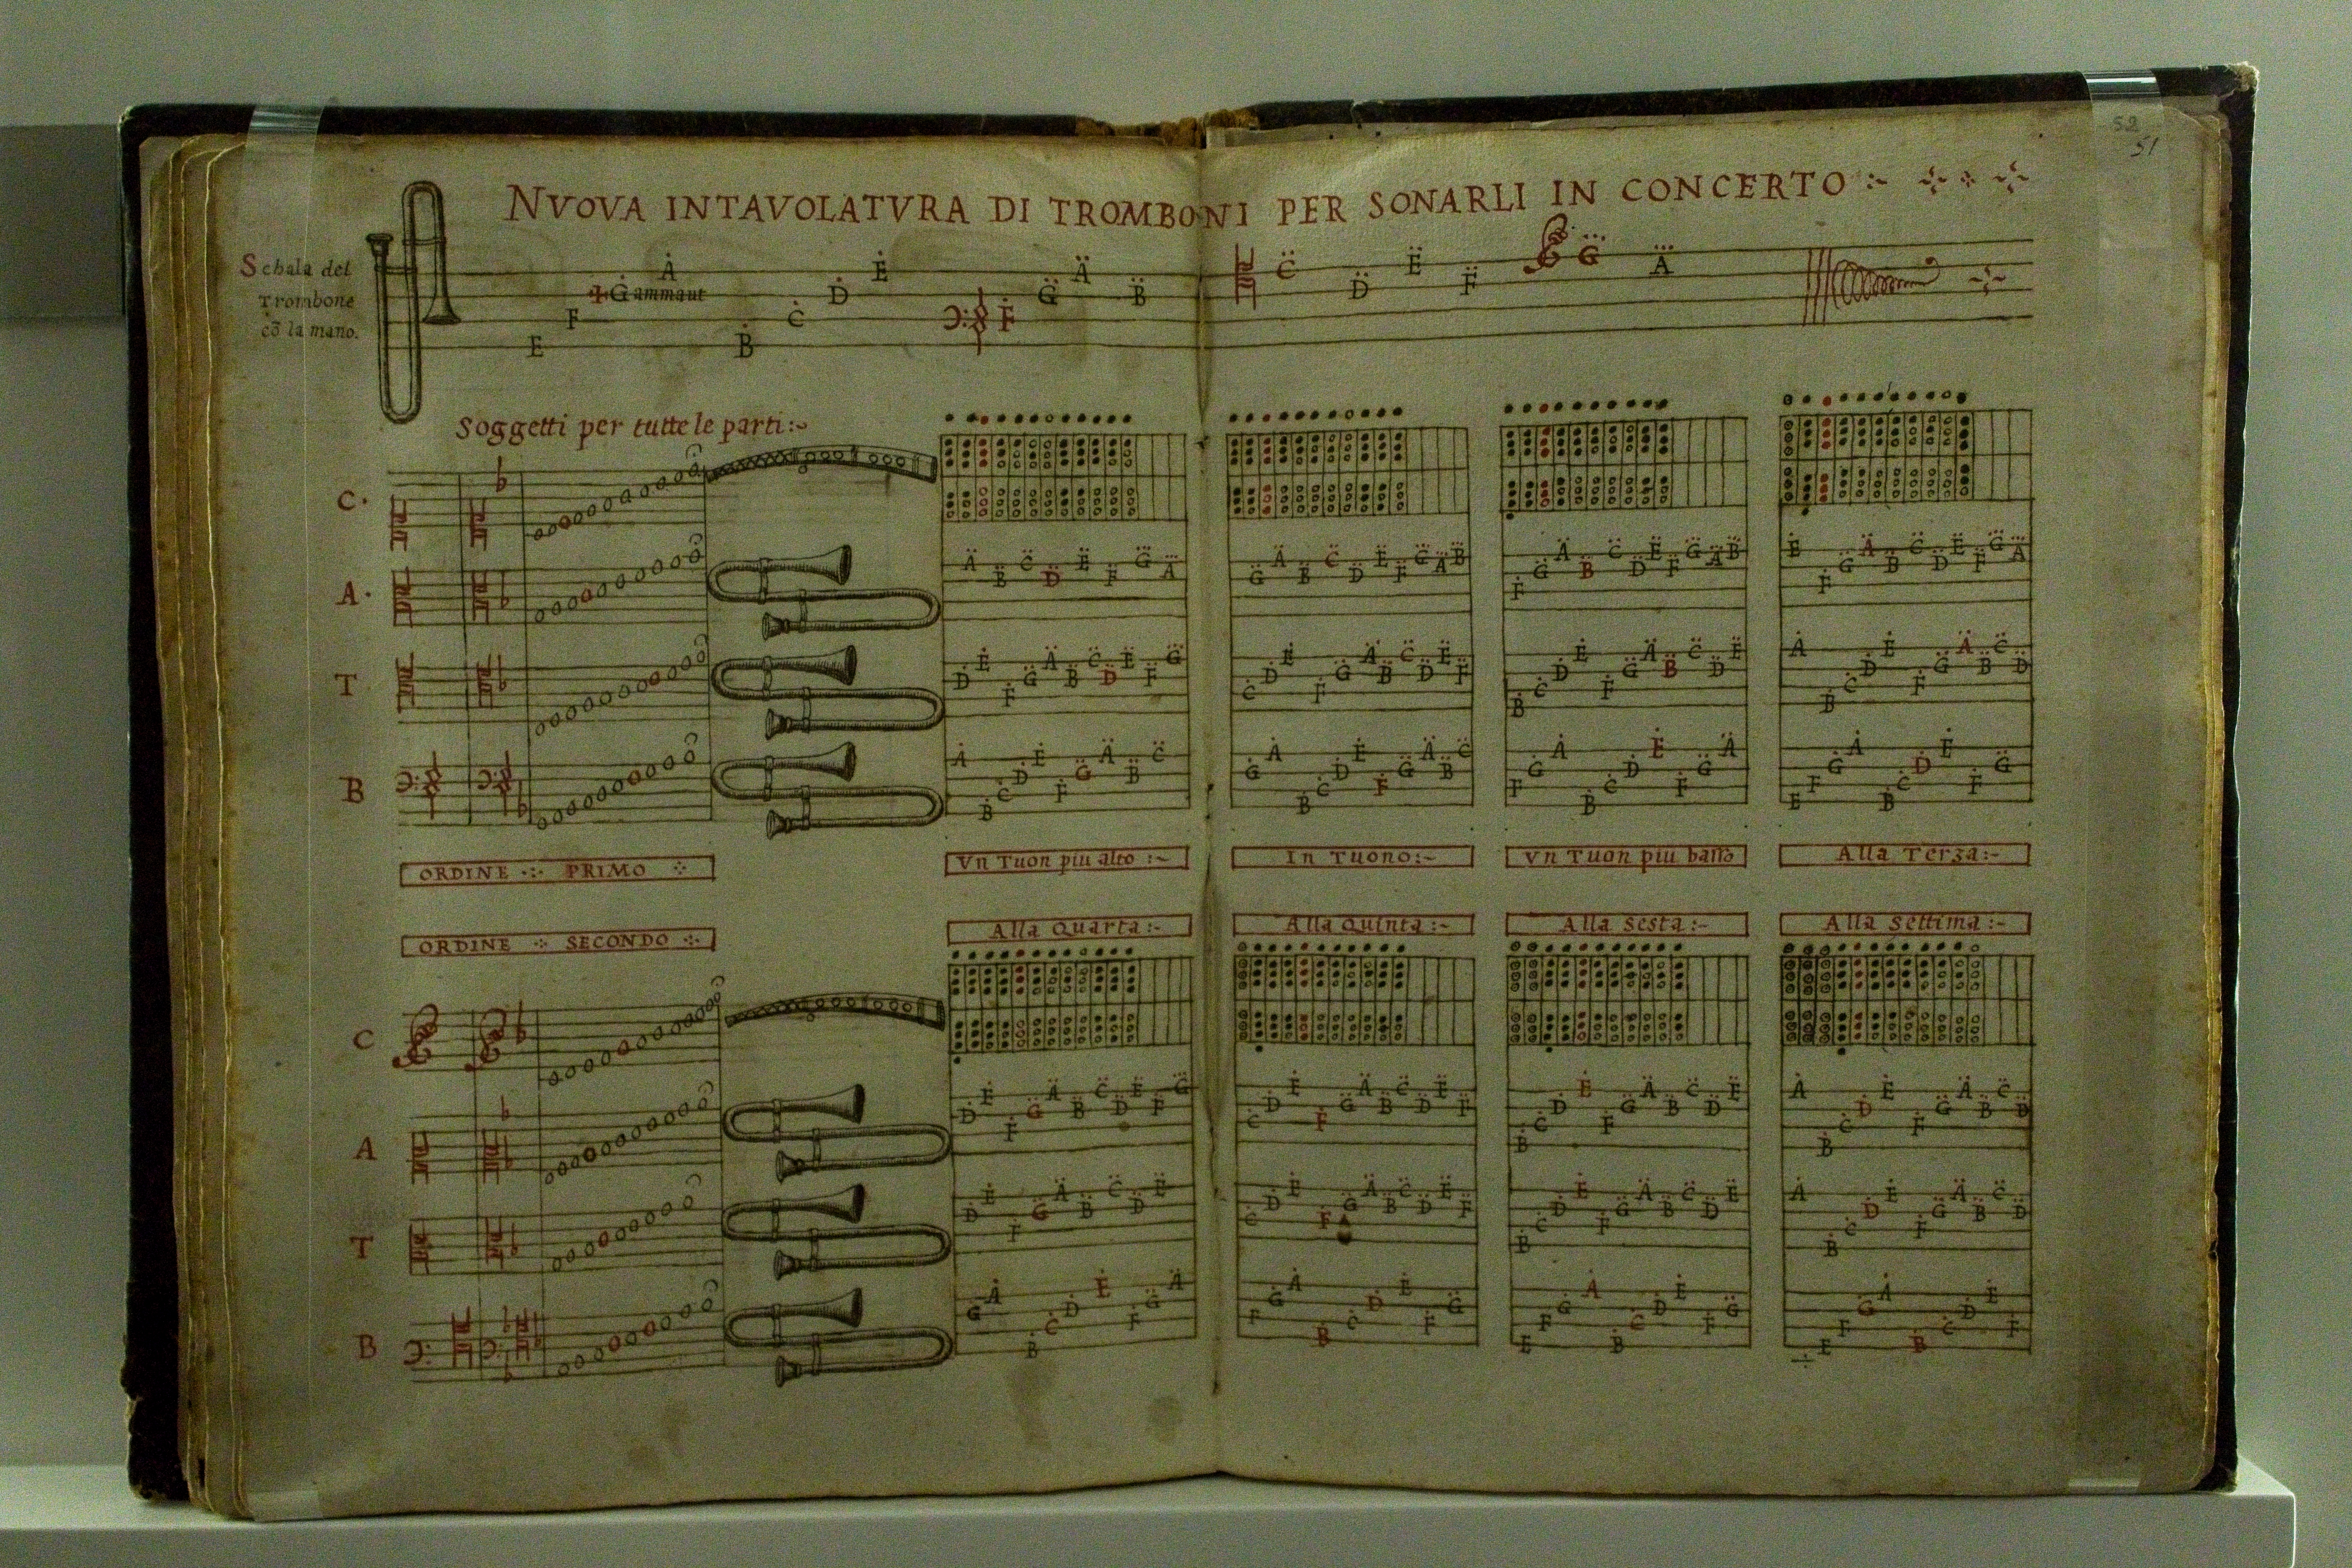 52
51
NVOVA INTAVOLATVRA DI TROMBONI PER SONARLI IN CONCERTO
Schala del
Trombone
cō la mano.
E F Gammaut A B C D E F G A B C D E F G A
Soggetti per tutte le parti
C
A
A B C D E F G A
G A B C D E F G A B
F G A B C D E F G A B
E F G A B C D E F G A
T
D E F G A B C D E F G
C D E F G A B C D E F
B C D E F G A B C D E
A B C D E F G A B C D
B
A B C D E F G A B C
G A B C D E F G A B C
F G A B C D E F G A
E F G A B C D E F G
ORDINE PRIMO
Vn Tuon piu alto
In Tuono
Vn Tuon piu basso
Alla Terza
ORDINE SECONDO
Alla Quarta
Alla Quinta
Alla Sesta
Alla Settima
C
A
D E F G A B C D E F G
C D E F G A B C D E F
B C D E F G A B C D E
A B C D E F G A B C D
T
D E F G A B C D E
C D E F G A B C D E F
B C D E F G A B C D E
A B C D E F G A B C D
B
G A B C D E F G A
F G A B C D E F G
E F G A B C D E F G
E F G A B C D E F